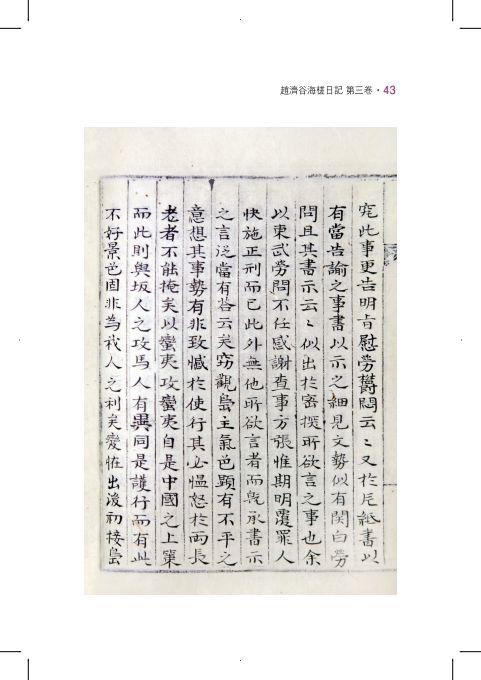 趙濟谷海槎日記 第三卷 · 43
究此事更告明旨慰勞鬱悶云〻又於片紙書以
有當告諭之事書以示之細見文勢似有関白勞
問且其書示云〻似出於密探所欲言之事也余
以東武勞問不任感謝查事方張惟期明覆罪人
快施正刑而已此外無他所欲言者而旣承書示
之言泛當有答云矣窃觀島主氣色顯有不平之
意想其事勢有非致憾於使行其必慍怒於兩長
老者不能掩矣以蠻夷攻蠻夷自是中國之上策
而此則與坂人之攻馬人有異同是護行而有此
不好景色固非為我人之利矣變恠出後初接島